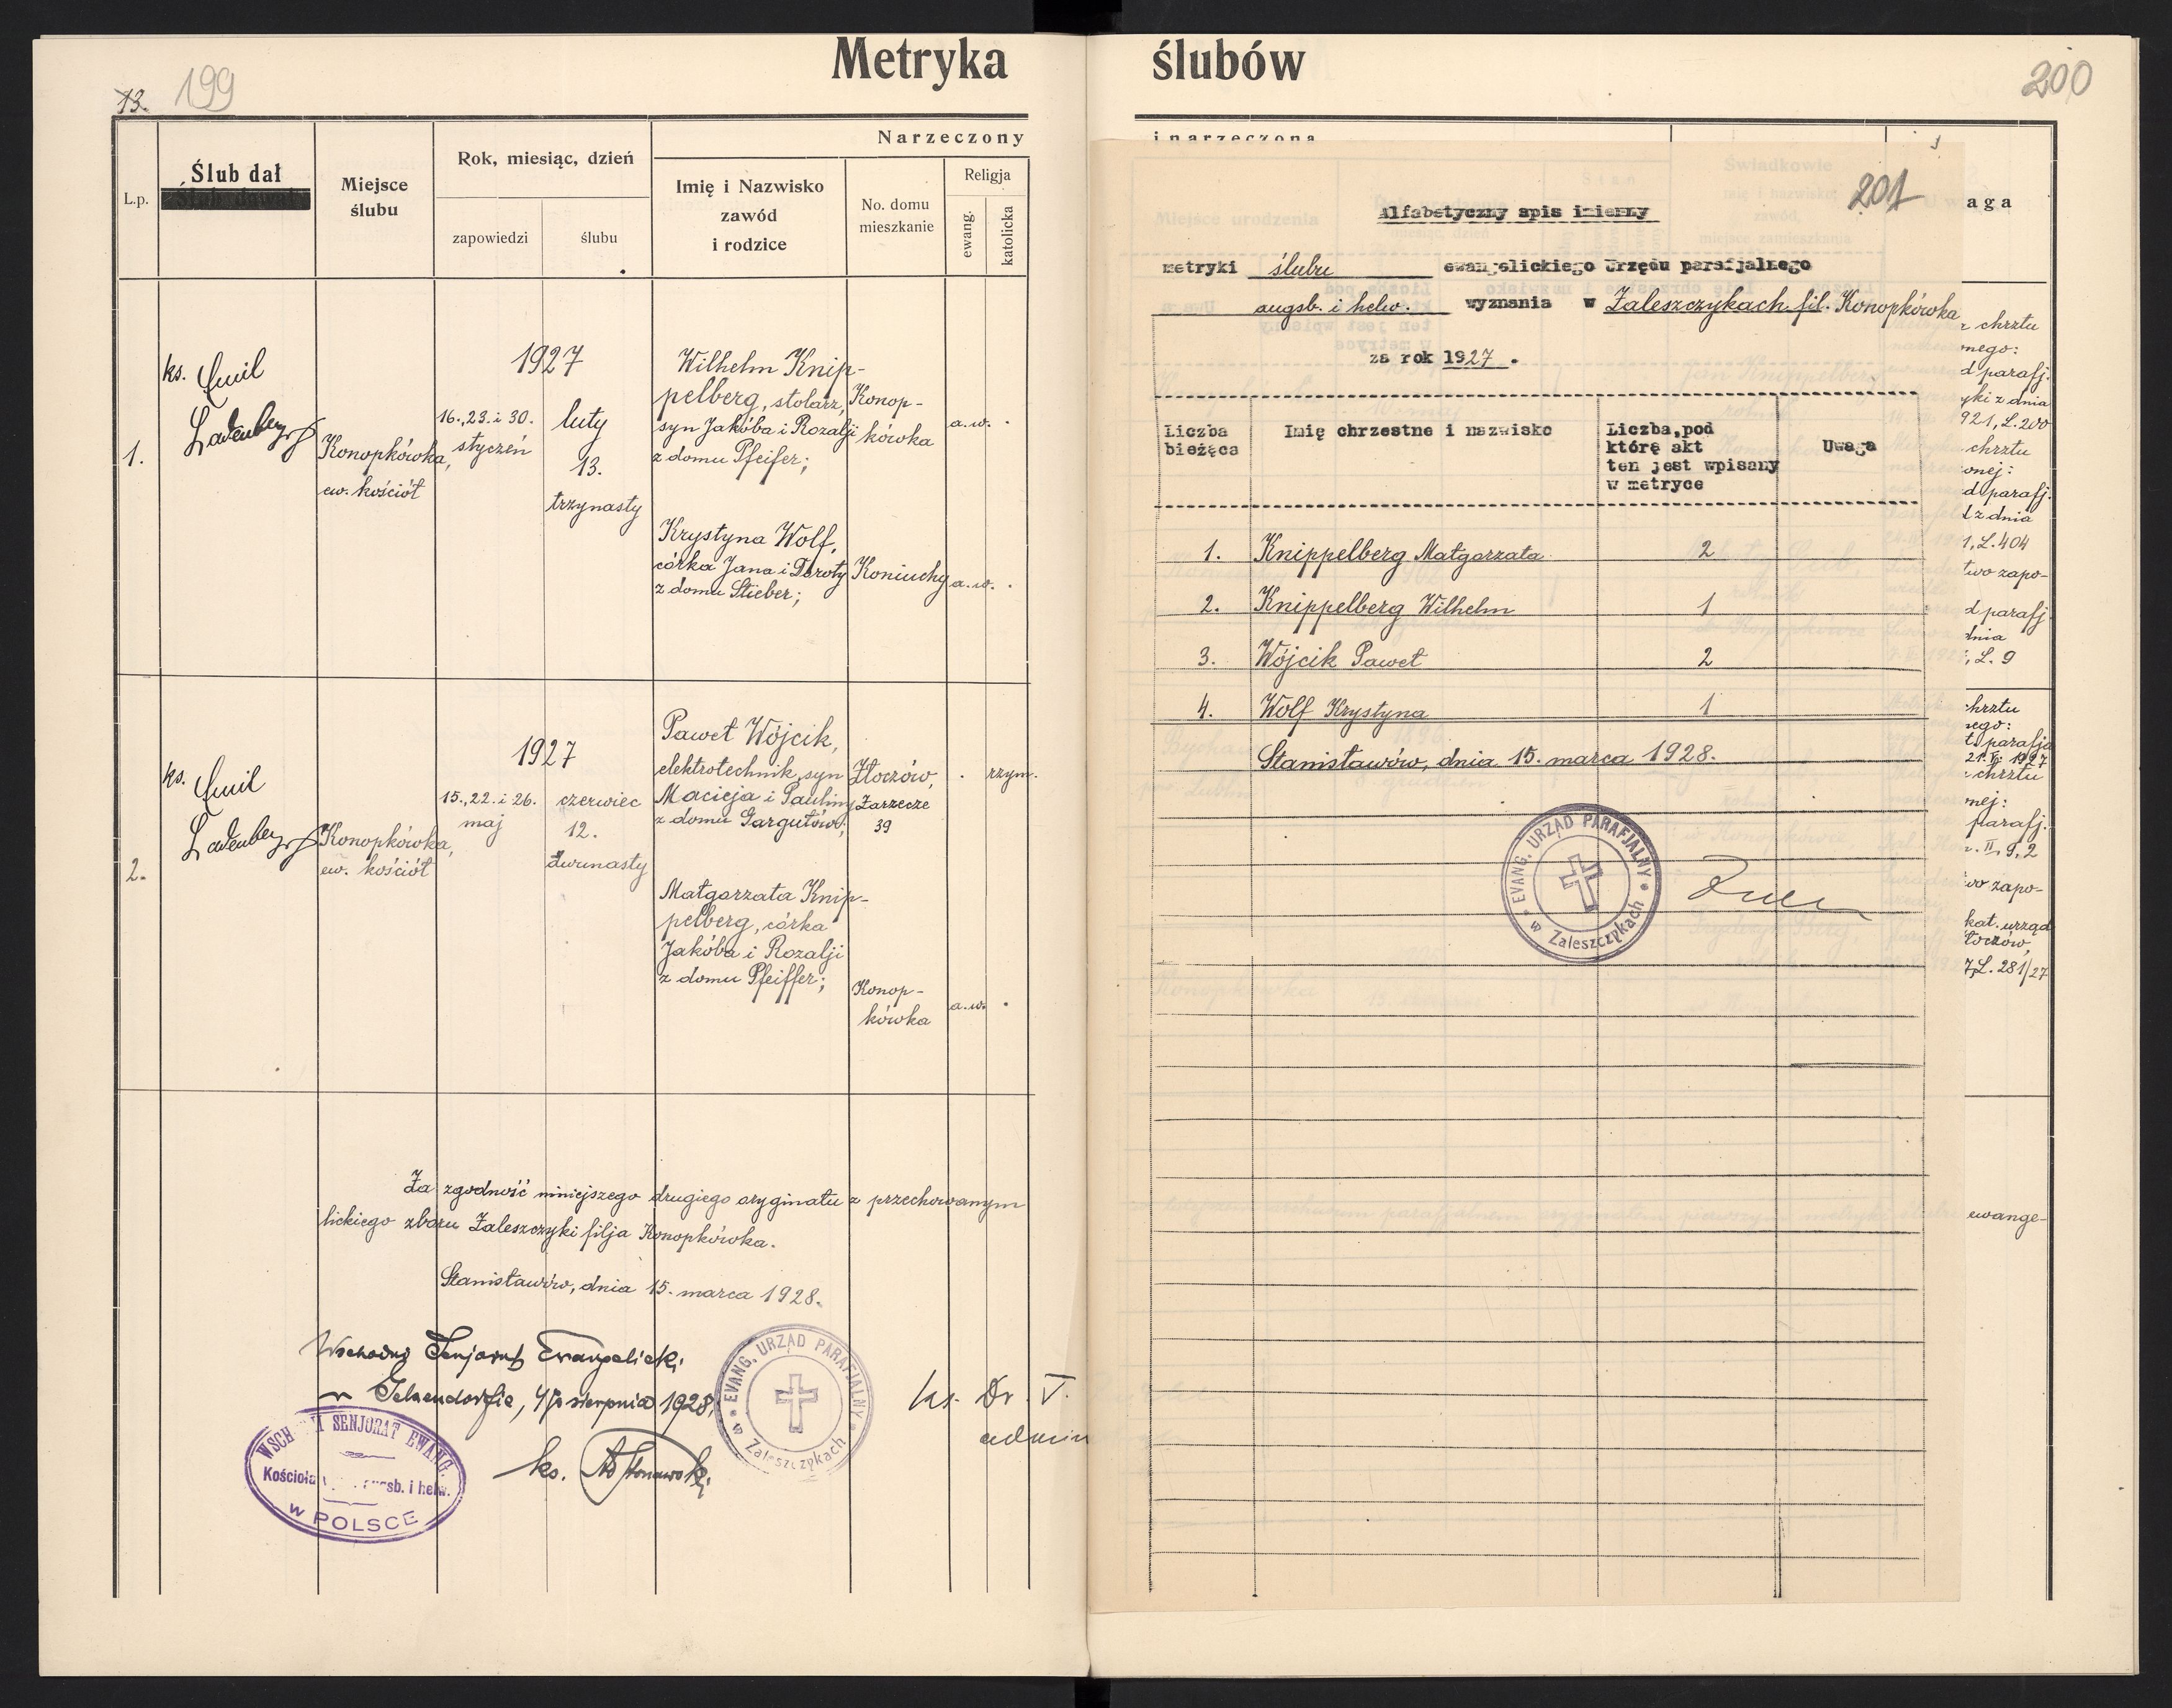 Metryka
13. 199
L.p.
Ślub dał
Miejsce
ślubu
Rok, miesiąc, dzień
zapowiedzi
ślubu
Narzeczony
Imię i Nazwisko
zawód
i rodzice
No. domu
mieszkanie
Religja
ewang.
katolicka
1.
ks. Emil
Ladenberger
Konopkówka,
ew. kościół
1927
16., 23. i 30.
styczeń
luty
13.
trzynasty
Wilhelm Knip-
pelberg, stolarz,
syn Jakóba i Rozalji
z domu Pfeifer;
Konop-
kówka
a.w.
Krystyna Wolf,
córka Jana i Doroty
z domu Stieber;
Koniuchy
a.w.
2.
ks. Emil
Ladenberger
Konopkówka,
ew. kościół
1927
15., 22. i 26.
maj
czerwiec
12.
dwunasty
Paweł Wójcik,
elektrotechnik, syn
Macieja i Pauliny
z domu Gargułów;
Złoczów,
Zarzecze
39
rzym.
Małgorzata Knip-
pelberg, córka
Jakóba i Rozalji
z domu Pfeiffer;
Konop-
kówka
a.w.
Za zgodność niniejszego drugiego oryginału z przechowanym
lickiego zboru Zaleszczyki filja Konopkówka.
Stanisławów, dnia 15. marca 1928.
Wschodni Senjorat Ewangelicki
w Gelsendorfie, sierpnia 1928.
ks.
EVANG. URZĄD PARAFJALNY
w Zaleszczykach
SENJORAT EWANG.
Kościoła sb. i helw.
w POLSCE
ks. Dr. T.
admin
ślubów
200
i narzeczona
201
aga
Alfabetyczny spis imienny
metryki ślubu ewangelickiego Urzędu parafjalnego
augsb. i helw. wyznania w Zaleszczykach fil. Konopkówka
za rok 1927.
Liczba
bieżąca
Imię chrzestne i nazwisko
Liczba, pod
którę akt
ten jest wpisany
w metryce
Uwaga
1. Knippelberg Małgorzata 2
2. Knippelberg Wilhelm 1
3. Wójcik Paweł 2
4. Wolf Krystyna 1
Stanisławów, dnia 15. marca 1928.
EVANG. URZĄD PARAFJALNY
w Zaleszczykach
chrztu
nego:
d parafj.
yki z dnia
921, L. 200
chrztu
onej:
d parafj.
z dnia
1, L. 404
two zapo-
d parafj.
dnia
, L. 9
chrztu
nego:
parafja
chrztu
nej:
parafj.
wo zapo-
kat. urząd
łoczów,
7, L. 281/27
ewange-